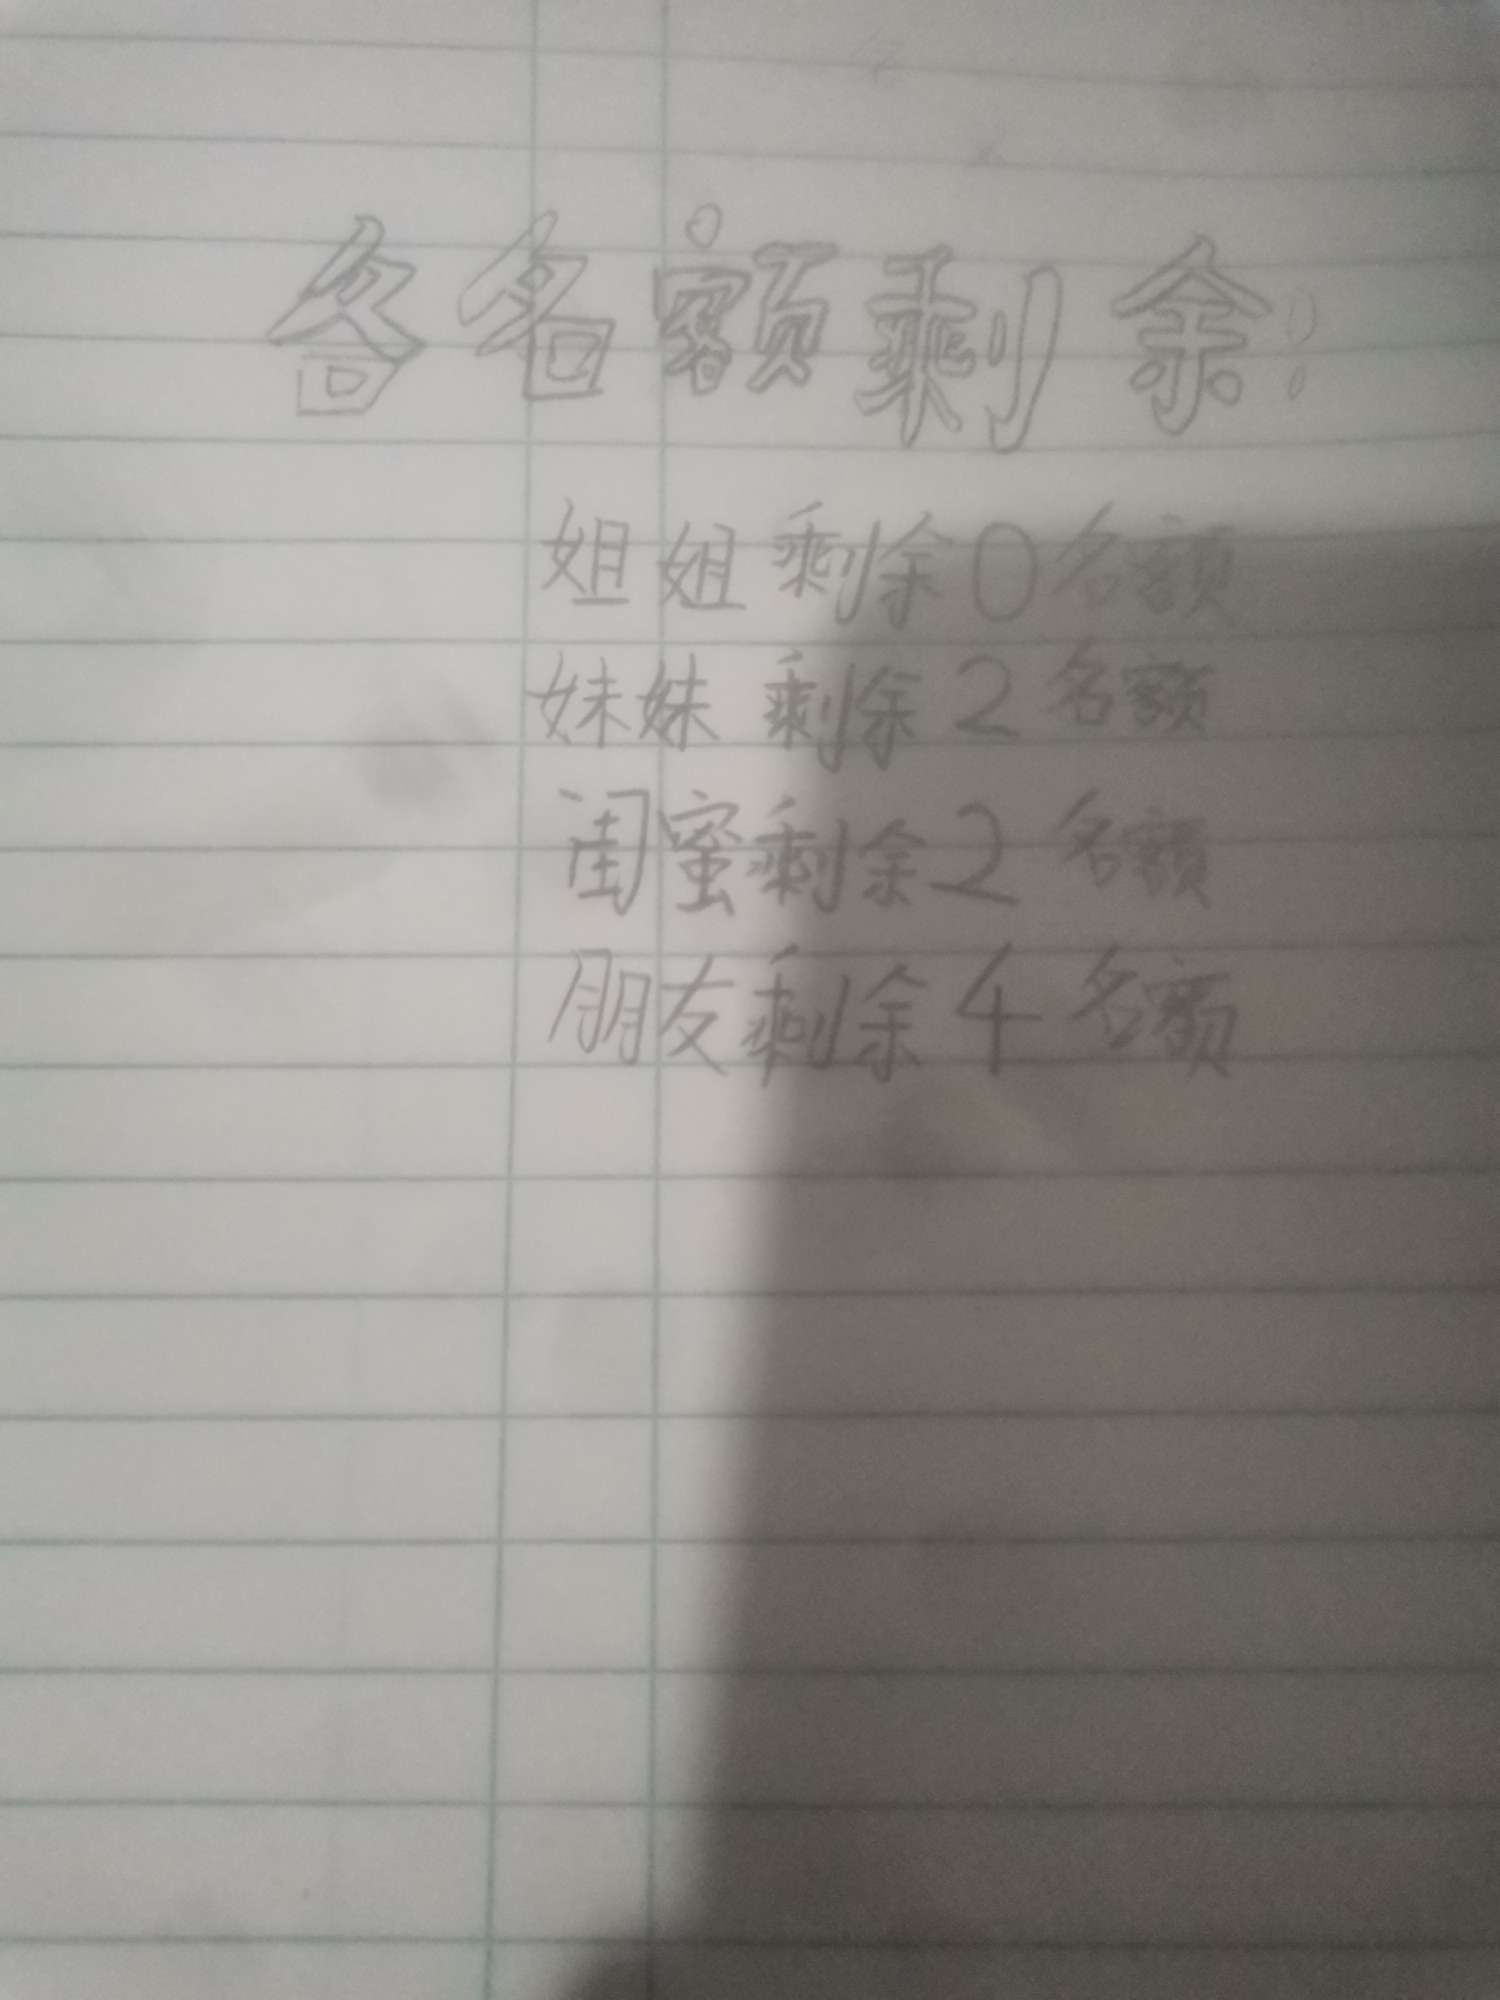 各名额剩余!
姐姐剩余0名额
妹妹剩余2名额
闺蜜剩余2名额
朋友剩余4名额